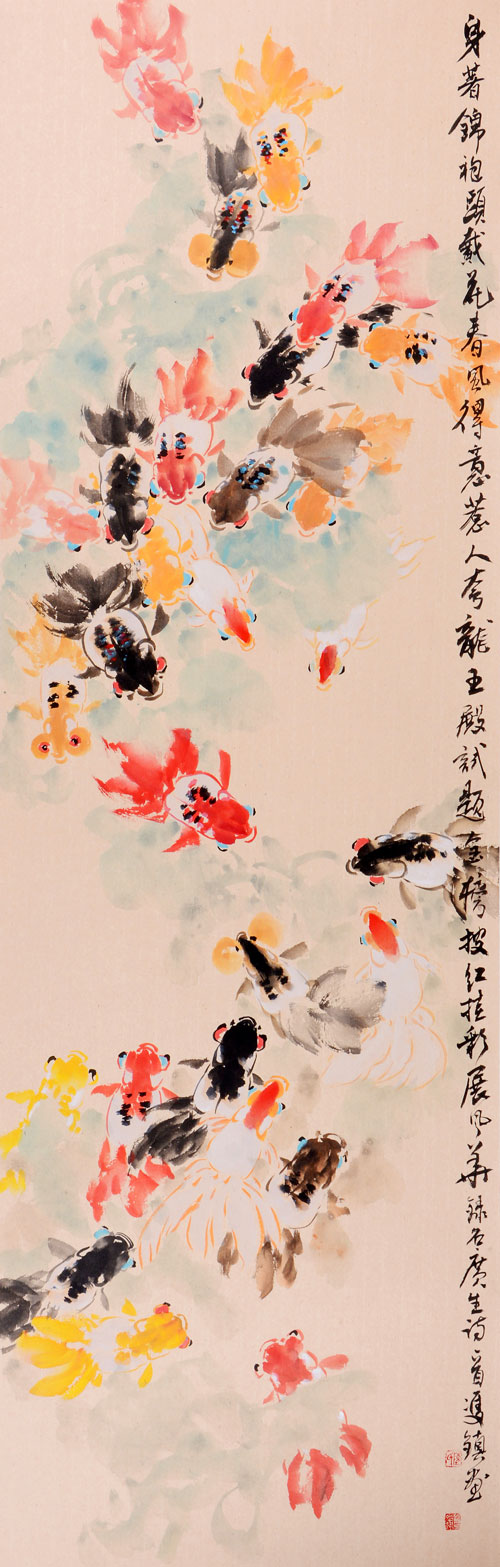 身著錦袍頭戴花春風得意惹人夸龍王殿試題金榜披紅挂彩展風華錄石廣生詩一首馮鎮畫